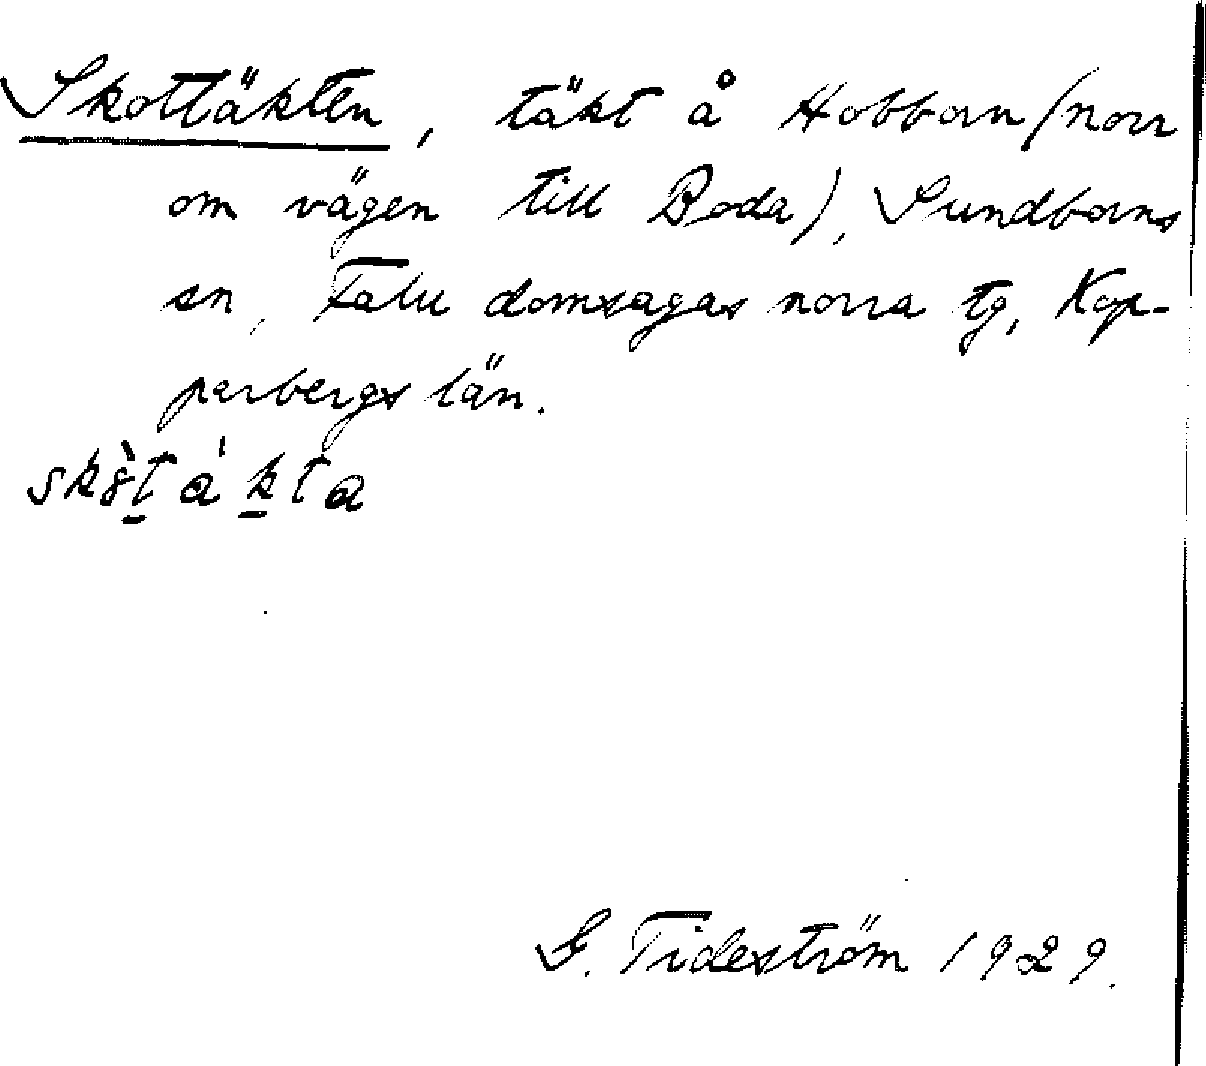 Skottäkten, täkt å Hobborn (norr
om vägen till Boda), Sundborns
sn, Falu domsagas norra tg, Kop-
parbergs län.
G. Tideström 1929.